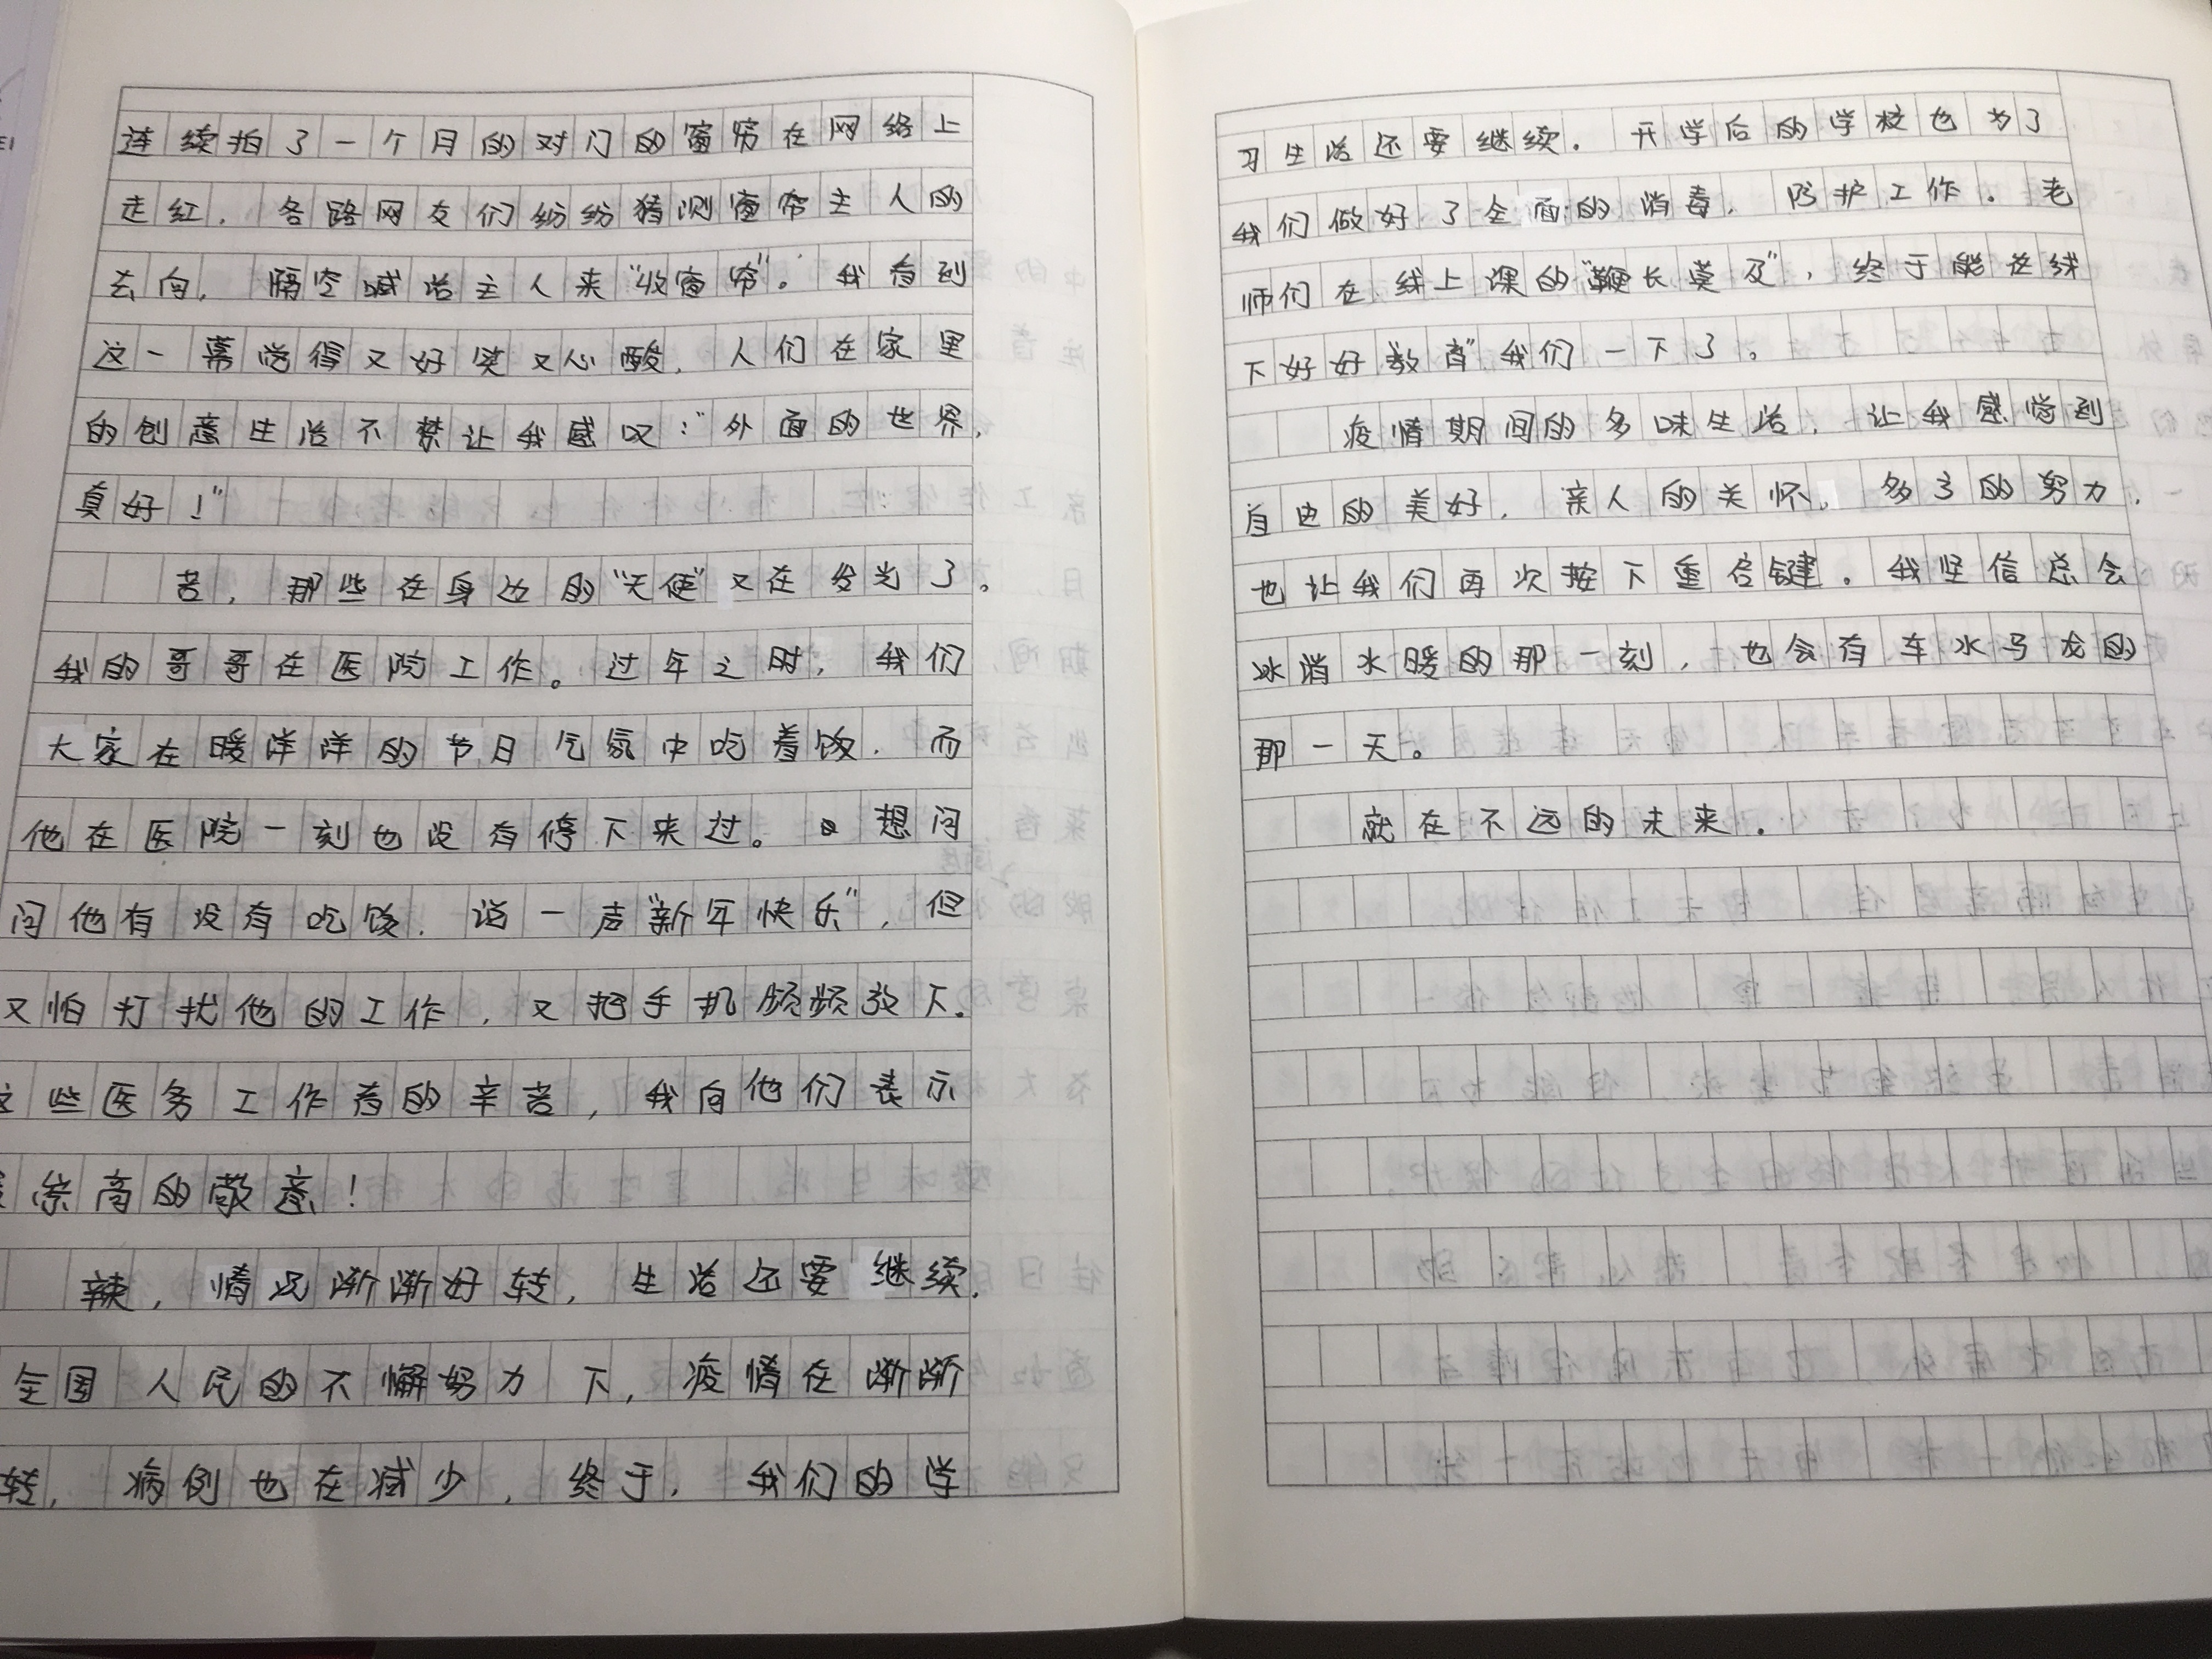 连续拍了一个月的对门的窗帘在网络上
走红，各路网友们纷纷猜测窗帘主人的
去向，隔空喊话主人来“收窗帘”。我看到
这一幕觉得又好笑又心酸，人们在家里
的创意生活不禁让我感叹：“外面的世界，
真好！”
苦，那些在身边的“天使”又在发光了。
我的哥哥在医院工作。过年之时，我们
大家在暖洋洋的节日气氛中吃着饭，而
他在医院一刻也没有停下来过。想问
问他有没有吃饭，说一声“新年快乐”，但
又怕打扰他的工作，又把手机频频放下。
这些医务工作者的辛苦，我向他们表示
崇高的敬意！
辣，情况渐渐好转，生活还要继续，
全国人民的不懈努力下，疫情在渐渐
转，病例也在减少，终于，我们的学
习生活还要继续．开学后的学校也为了
我们做好了全面的消毒，防护工作。老
师们在线上课的“鞭长莫及”，终于能在线
下好好“教育”我们一下了。
疫情期间的多味生活，让我感悟到
自由的美好，亲人的关怀，多了的努力，
也让我们再次按下重启键。我坚信总会
冰消水暖的那一刻，也会有车水马龙的
那一天。
就在不远的未来．